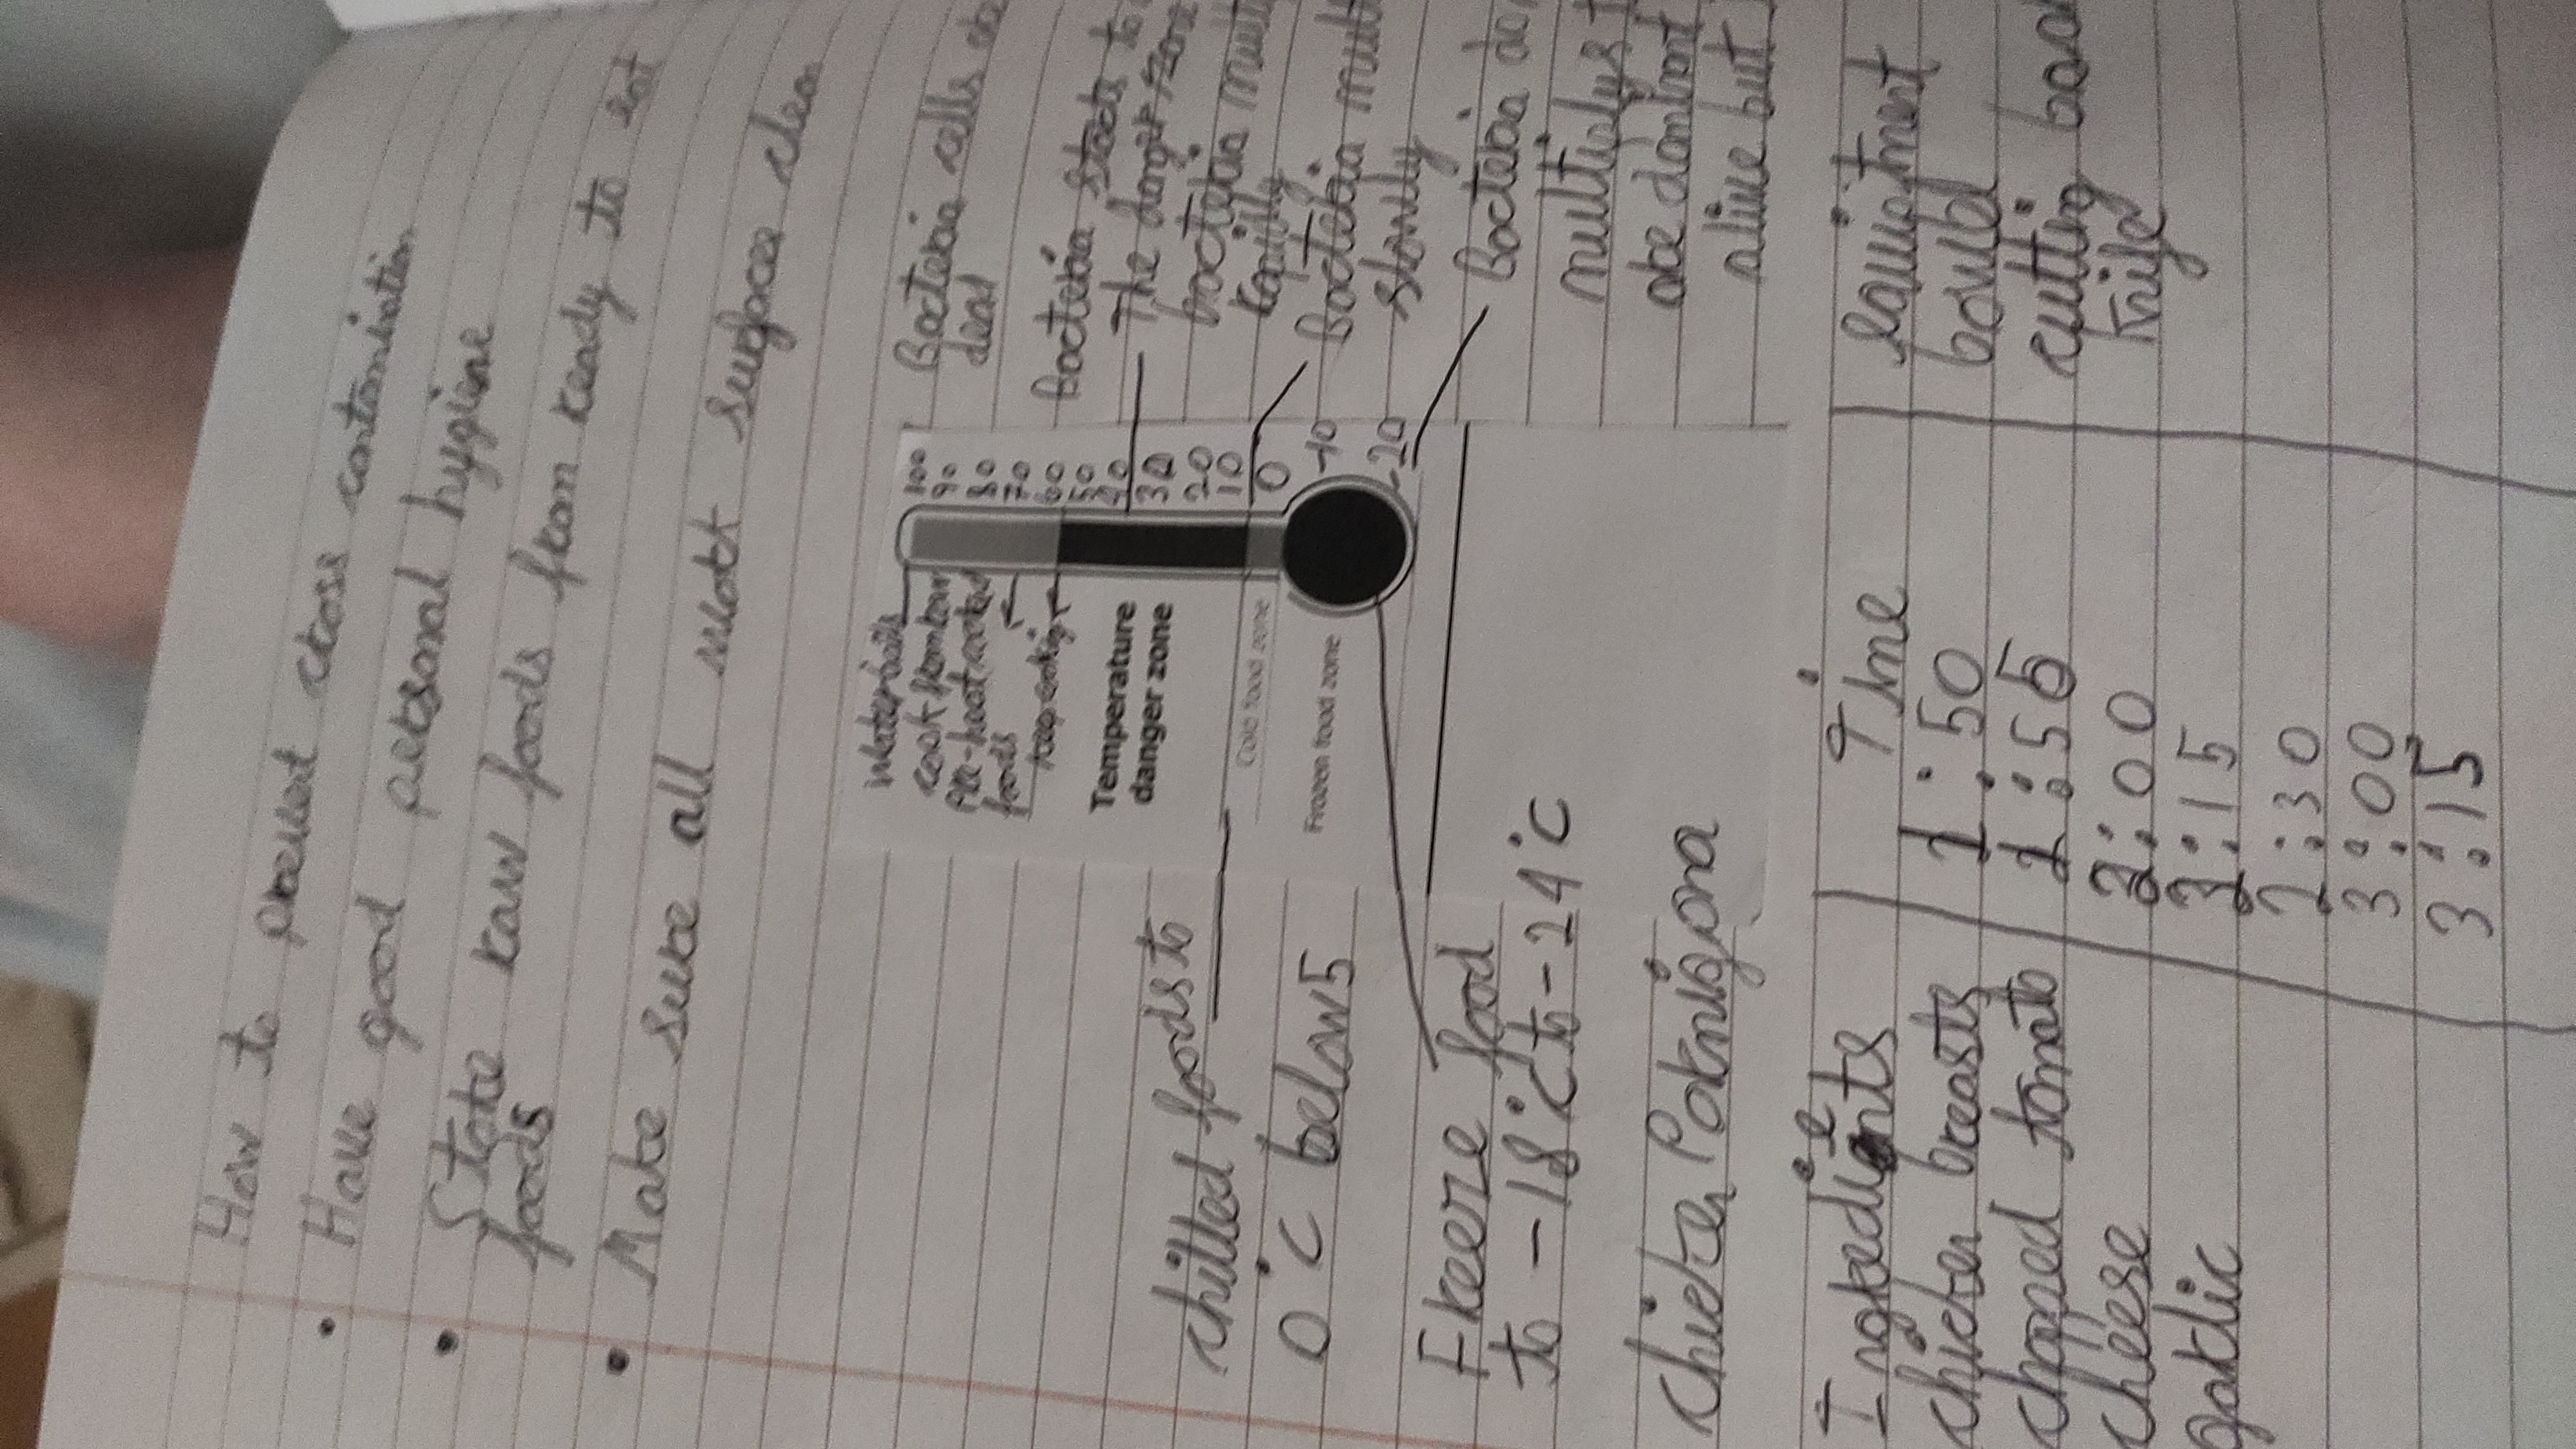 How to prevent cross contamination
Have good personal hygiene
Store raw foods from ready to eat
foods
Make sure all work surfaces clea
Water boils
cook
Pre-heat cooked
foods
keep
Temperature
danger zone
Cold food zone
Frozen food zone
100
90
80
70
60
50
40
30
20
10
0
-10
-20
Bacteria cells
dead
Bacteria starts to
The danger zone
bacteria mult
rapidly
Bacteria mult
slowly
Bacteria do
multiplys
are dormant
alive but
chilled foods to
0°c below 5
Freeze food
to -18°c to -24°c
chicken Parmigona
Ingredients
chicken breasts
chopped tomato
cheese
garlic
Time
1:50
1:55
2:00
2:15
2:30
3:00
3:15
Equiptment
bowl
cutting boar
knife